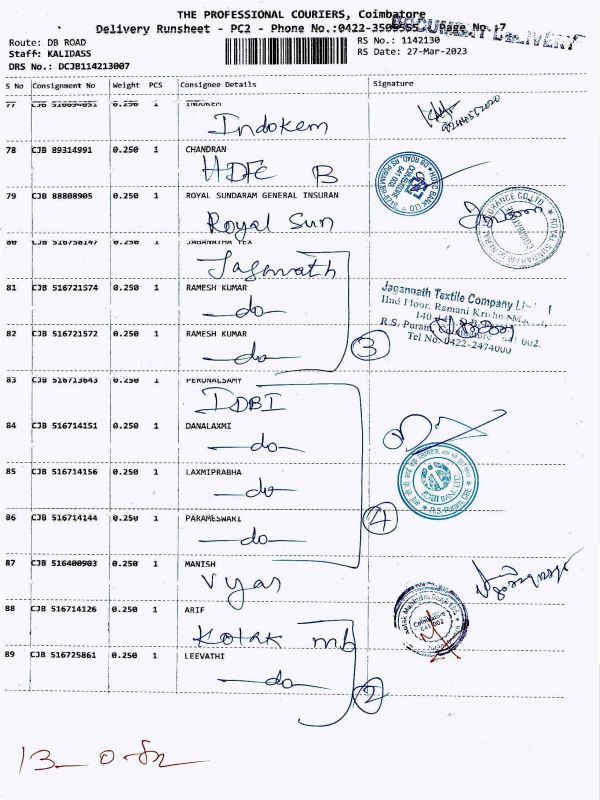 THE PROFESSIONAL COURIERS, Coimbatore
DOCUMENT DELIVERY
Delivery Runsheet - PC2 - Phone No.:0422-3505555 Page No.:7
Route: DB ROAD
Staff: KALIDASS
DRS No.: DCJB114213007
RS No.: 1142130
RS Date: 27-Mar-2023
S No Consignment No Weight PCS Consignee Details Signature
77 0.250 1 INDOKEM
Indokem
78 CJB 89314991 0.250 1 CHANDRAN
HDFC B
79 CJB 88808905 0.250 1 ROYAL SUNDARAM GENERAL INSURAN
Royal Sun
80 CJB 516758147 0.250 1 JAGANATHA TEX
Jagannath
81 CJB 516721574 0.250 1 RAMESH KUMAR
—do—
82 CJB 516721572 0.250 1 RAMESH KUMAR
—do—
3
Jagannath Textile Company
IInd Floor, Ramani
R.S. Puram, 641 002.
Tel No. 0422-2474000
83 CJB 516713643 0.250 1 PERUNALSAMY
IDBI
84 CJB 516714151 0.250 1 DANALAXMI
—do—
85 CJB 516714156 0.250 1 LAXMIPRABHA
—do—
IDBI BANK LTD.
R.S. Puram, CBE
86 CJB 516714144 0.250 1 PARAMESWARI
—do—
4
87 CJB 516400903 0.250 1 MANISH
Vyas
88 CJB 516714126 0.250 1 ARIF
Kotak mb
Coimbatore
641 002
89 CJB 516725861 0.250 1 LEEVATHI
—do—
2